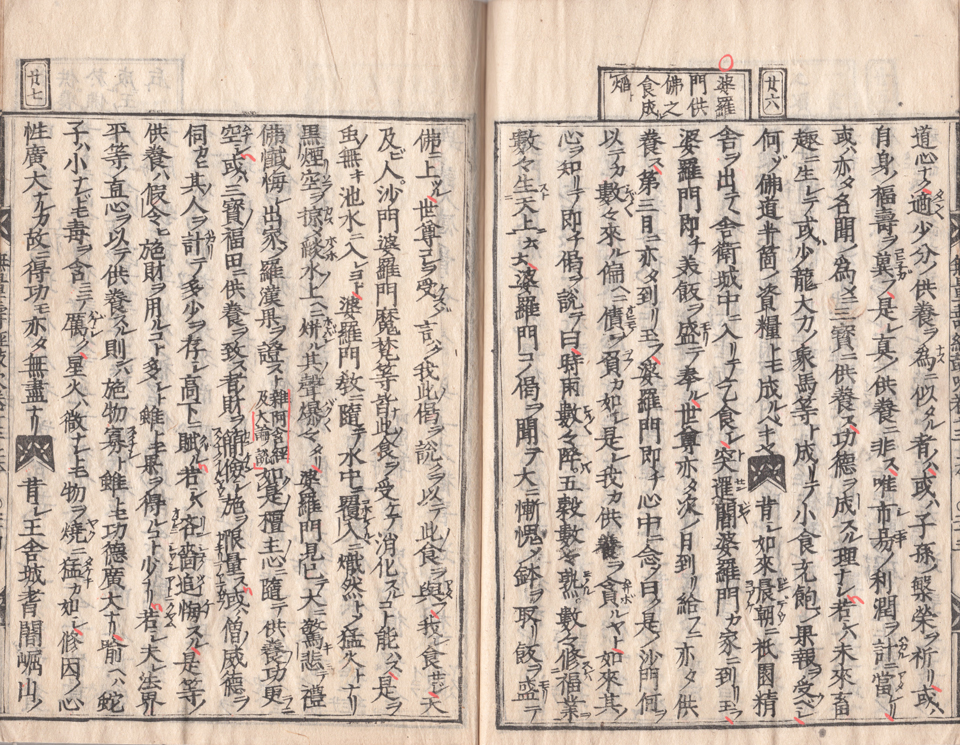 廿六
婆羅
門供
佛之
食成
焔
道心ナク適少分ノ供養ヲ為ニ似タル者ノハ或ハ子孫ノ繁榮ヲ祈リ或ハ
自身ノ福壽ヲ冀フ是レ真ノ供養ニ非ス唯市易ノ利潤ヲ計ニ當レリ
或ハ亦タ名聞ノ為メニ三寶ニ供養ス功德ヲ成スル理ナシ若ハ未來畜
趣ニ生レテ或ハ少龍大力ノ象馬等ト成リテ小食充飽ノ果報ヲ受ベシ
何ソ佛道半箇ノ資糧トモ成ルベキヤ 昔シ如來晨朝ニ祇園精
舍ヲ出テ舍衛城中ニ入リテ乞食シ突邏闍婆羅門カ家ニ到リ玉フ
婆羅門即チ美飯ヲ盛テ奉ル世尊亦タ次ノ日到リ給フニ亦タ供
養ス第三日ニ亦タ到リ玉フ婆羅門即チ心中ニ念ノ曰ク是ノ沙門何ヲ
以テカ數々來ル偏ヘニ債ヲ負カ如シ是レ我カ供養ヲ貪ハヤト如來其ノ
心ヲ知リテ即チ偈ヲ説テ曰ク時雨數々降五穀數々熟數々修福業
數々生天上ト云云婆羅門コノ偈ヲ聞テ大ニ慚愧ノ鉢ヲ取リ飯ヲ盛テ
廿七
佛ニ上ツル世尊コヲ受ケス言ク我此偈ヲ説クヲ以テ此食ヲ與フ我レ食セジ天
及ヒ人沙門婆羅門魔梵等皆此食ヲ受ケテ消化スルコト能ハス是ヲ
虫無キ池水ニ入レヨト婆羅門敎ニ隨テ水中ニ覆入ス熾然トノ猛火トナリ
黒煙空ヲ掠メ燄水上ニ烑ル其聲爆々タリ婆羅門見已テ大ニ驚悲テ禮
佛懺悔シ出家ノ羅漢果ヲ證スト雜阿含經及大海説如是檀主心ニ隨テ供養功更ニ
空シ或ハ三寶福田ニ供養ヲ致ス者財ヲ簡儉シ施ヲ限量ス或ハ僧威德ヲ
伺カヒ其人ヲ計テ多少ヲ存シ高下ニ賦ル若シハ吝嗇追悔スル是等ノ
供養ハ假令ヒ施財ヲ用ルコト多シト雖トモ果ヲ得ルコト少ナリ若シ夫レ法界
平等ノ直心ヲ以テ供養スル則ハ施物寡シト雖トモ功德廣大ナリ喻ヘハ蛇
子ハ小ナレドモ毒ヲ含ミテ厲シ星火ハ微ナレトモ物ヲ燒ニ猛カ如シ修因ノ心
性廣大ナルカ故ニ得功モ亦タ無盡ナリ 昔シ王舍城耆闍崛山ノ